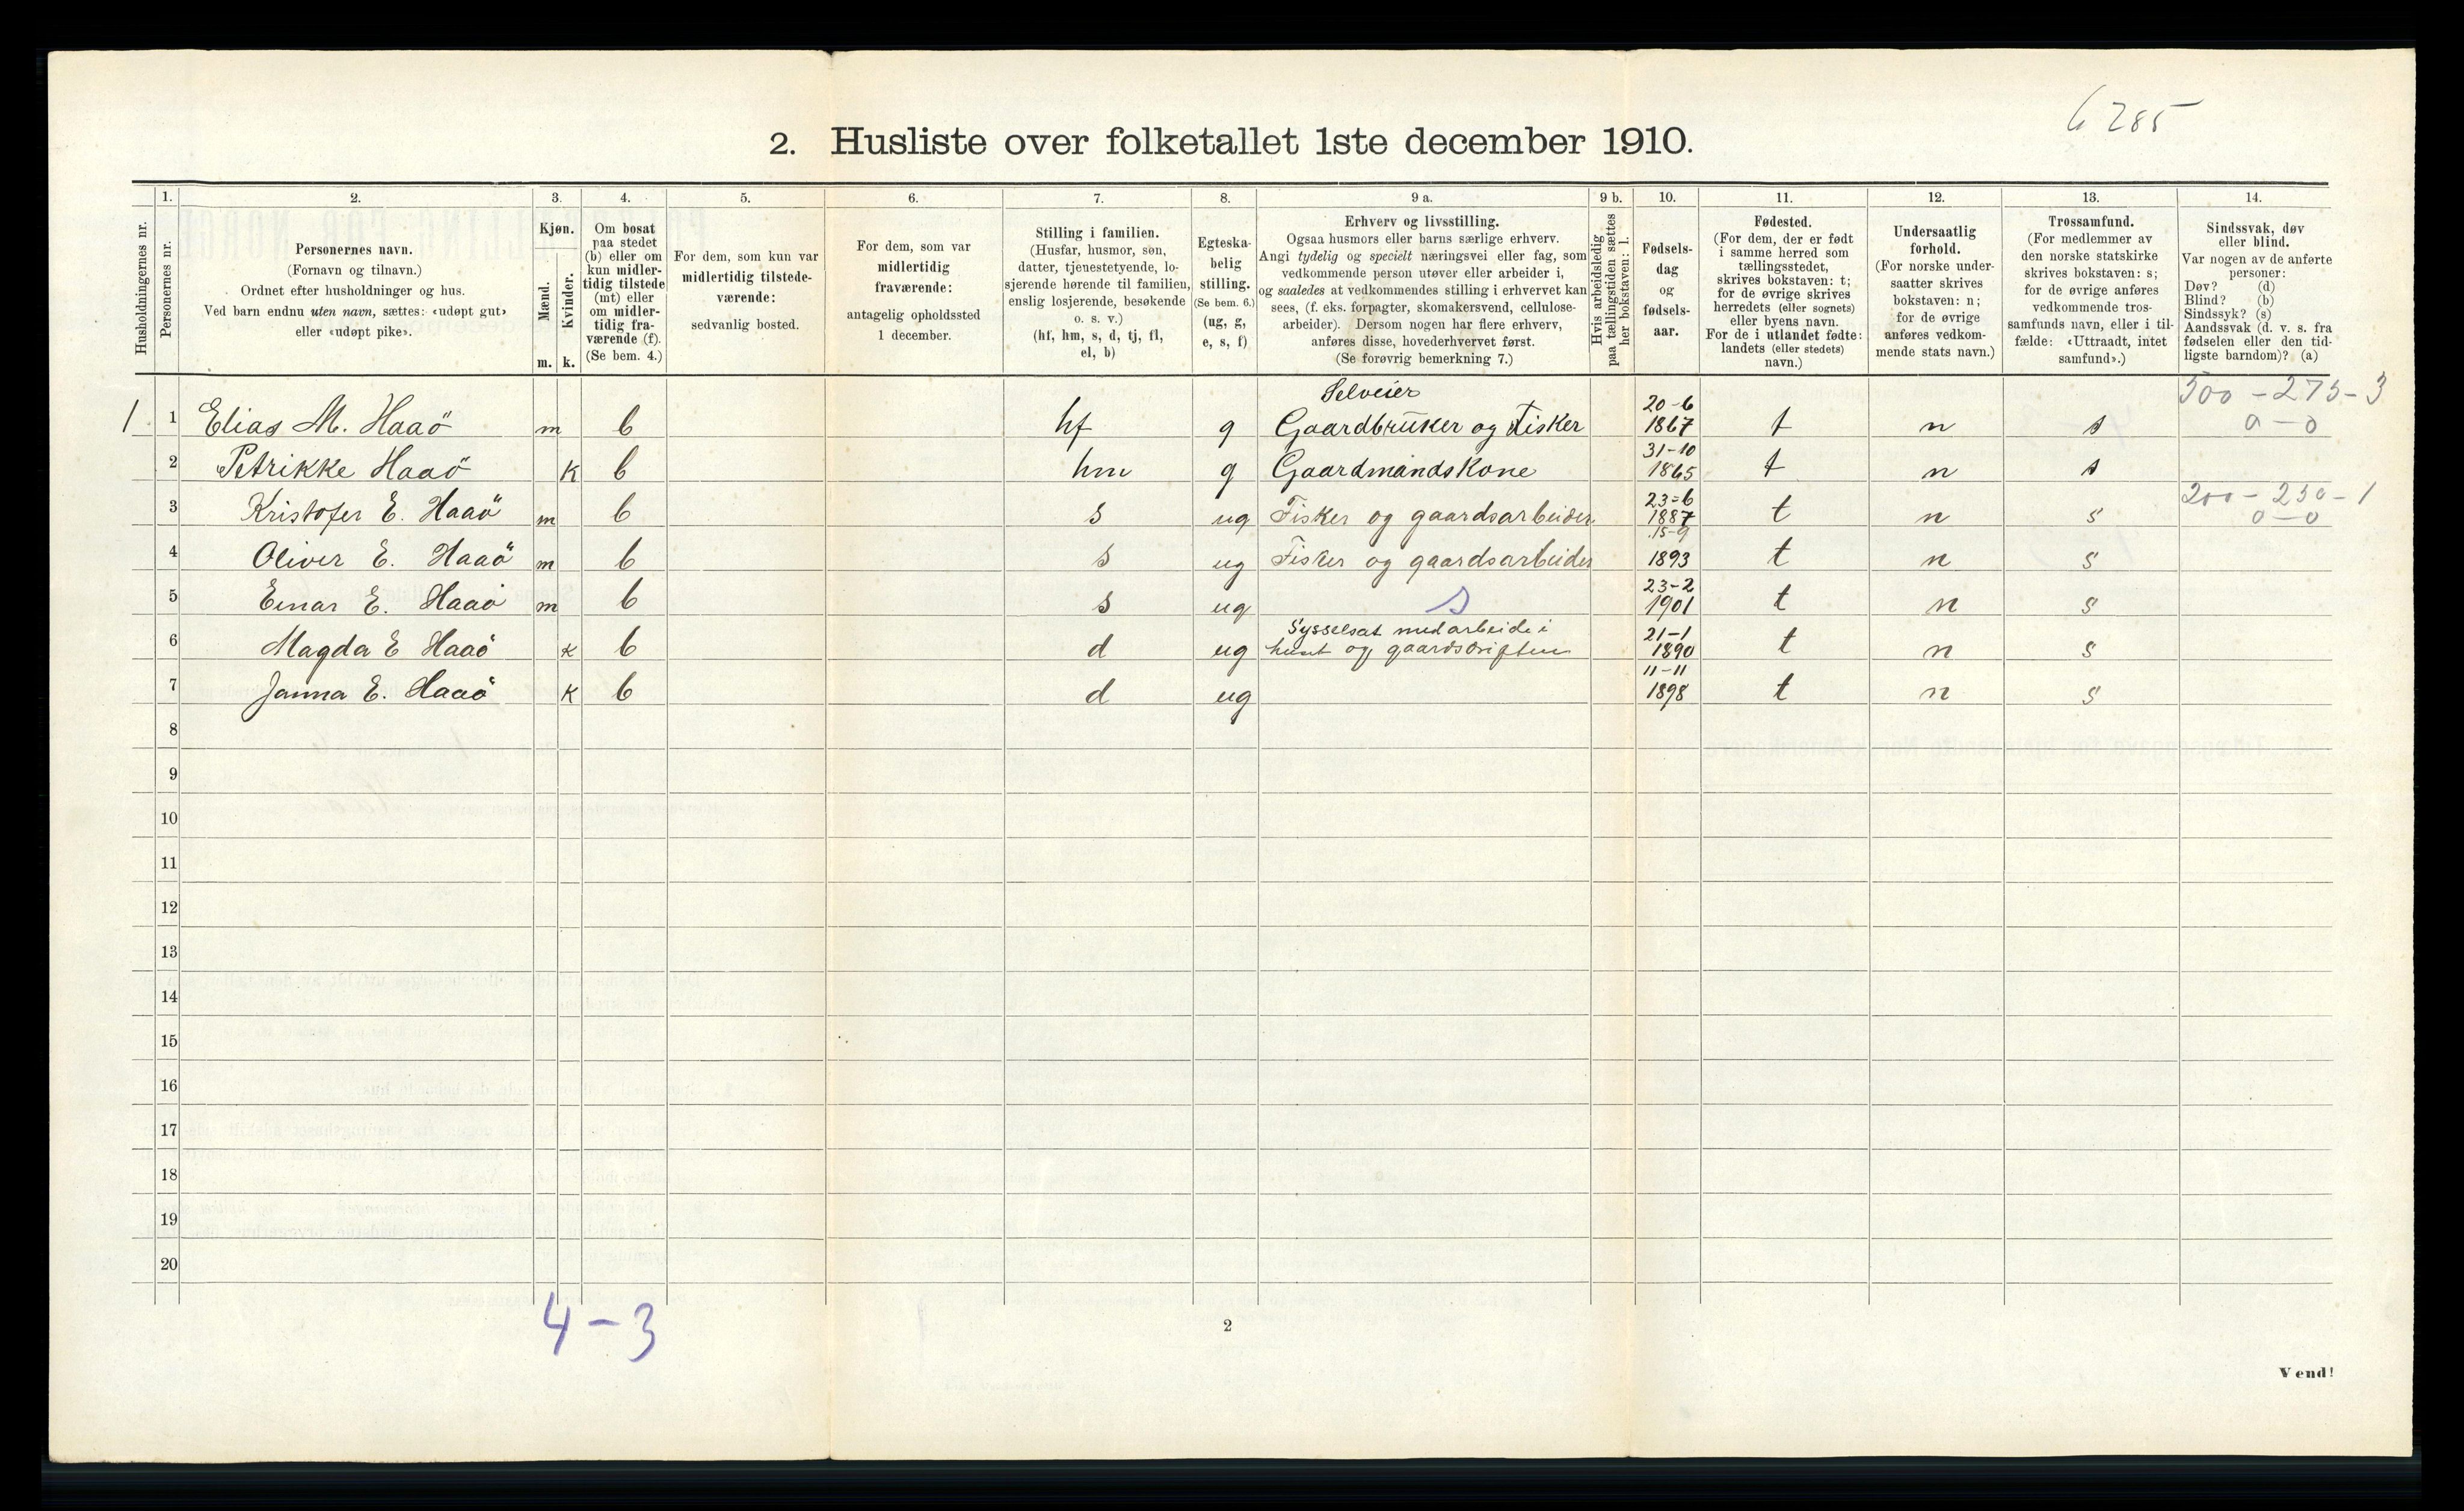 6 285
2. Husliste over folketallet 1ste december 1910.
1. 2. 3. 4. 5. 6. 7. 8. 9 a. 9 b. 10. 11. 12. 13. 14.
Husholdningernes nr.
Personernes nr.
Personernes navn.
(Fornavn og tilnavn.)
Ordnet efter husholdninger og hus.
Ved barn endnu uten navn, sættes: «udøpt gut»
eller «udøpt pike».
Kjøn.
Mænd.
Kvinder.
m. k.
Om bosat
paa stedet
(b) eller om
kun midler-
tidig tilstede
(mt) eller
om midler-
tidig fra-
værende (f).
(Se bem. 4.)
For dem, som kun var
midlertidig tilstede-
værende:
sedvanlig bosted.
For dem, som var
midlertidig
fraværende:
antagelig opholdssted
1 december.
Stilling i familien.
(Husfar, husmor, søn,
datter, tjenestetyende, lo-
sjerende hørende til familien,
enslig losjerende, besøkende
o. s. v.)
(hf, hm, s, d, tj, fl,
el, b)
Egteska-
belig
stilling.
(Se bem. 6.)
(ug, g,
e, s, f)
Erhverv og livsstilling.
Ogsaa husmors eller barns særlige erhverv.
Angi tydelig og specielt næringsvei eller fag, som
vedkommende person utøver eller arbeider i,
og saaledes at vedkommendes stilling i erhvervet kan
sees, (f. eks. forpagter, skomakersvend, cellulose-
arbeider). Dersom nogen har flere erhverv,
anføres disse, hovederhvervet først.
(Se forøvrig bemerkning 7.)
Hvis arbeidsledig
paa tællingstiden sættes
her bokstaven: l.
Fødsels-
dag
og
fødsels-
aar.
Fødested.
(For dem, der er født
i samme herred som
tællingsstedet,
skrives bokstaven: t;
for de øvrige skrives
herredets (eller sognets)
eller byens navn.
For de i utlandet fødte:
landets (eller stedets)
navn.)
Undersaatlig
forhold.
(For norske under-
saatter skrives
bokstaven: n;
for de øvrige
anføres vedkom-
mende stats navn.)
Trossamfund.
(For medlemmer av
den norske statskirke
skrives bokstaven: s;
for de øvrige anføres
vedkommende tros-
samfunds navn, eller i til-
fælde: «Uttraadt, intet
samfund».)
Sindssvak, døv
eller blind.
Var nogen av de anførte
personer:
Døv? (d)
Blind? (b)
Sindssyk? (s)
Aandssvak (d. v. s. fra
fødselen eller den tid-
ligste barndom)? (a)
Selveier 20-6 500 - 275 - 3
1 1 Elias M. Haaö m b hf g Gaardbruker og Fisker 1867 t n s 0 - 0
31-10
2 Petrikke Haaö k b hm g Gaardmandskone 1865 t n s
23-6 200 - 250 - 1
3 Kristofer E. Haaö m b s ug Fisker og gaardsarbeider 1887 t n s 0 - 0
15-9
4 Oliver E. Haaö m b s ug Fisker og gaardsarbeider 1893 t n s
23-2
5 Einar E. Haaö m b s ug s 1901 t n s
Sysselsat med arbeide i 21-1
6 Magda E Haaö k b d ug huset og gaardsdriften 1890 t n s
11-11
7 Janna E. Haaö k b d ug 1898 t n s
8
9
10
11
12
13
14
15
16
17
18
19
20
4 - 3
2
Vend!